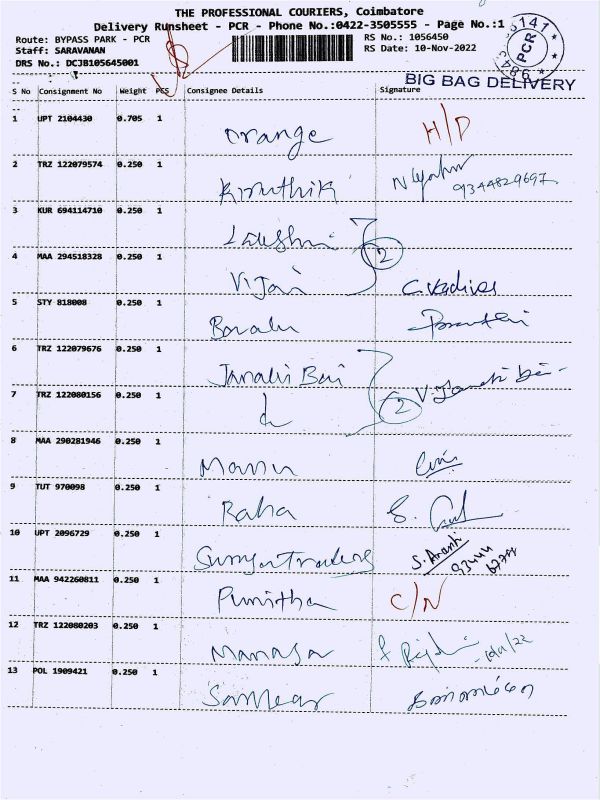 THE PROFESSIONAL COURIERS, Coimbatore
Delivery Runsheet - PCR - Phone No.:0422-3505555 - Page No.:1
Route: BYPASS PARK - PCR RS No.: 1056450
Staff: SARAVANAN RS Date: 10-Nov-2022
DRS No.: DCJB105645001
PCR
BIG BAG DELIVERY
S No Consignment No Weight PCS Consignee Details Signature
1 UPT 2104430 0.705 1 Orange H/D
2 TRZ 122079574 0.250 1 Kiruthik 9344829697
3 KUR 694114710 0.250 1 Lakshmi
2
4 MAA 294518328 0.250 1 Vijai C. Vadivel
5 STY 818008 0.250 1
6 TRZ 122079676 0.250 1 Janaki Bai V. Janaki Bai
7 TRZ 122080156 0.250 1 2
8 MAA 290281946 0.250 1 Mannu
9 TUT 970098 0.250 1 Raha
10 UPT 2096729 0.250 1 Traders S. Ananti
11 MAA 942260811 0.250 1 Punitha C/N
12 TRZ 122080203 0.250 1 Manasa
13 POL 1909421 0.250 1 Sankar